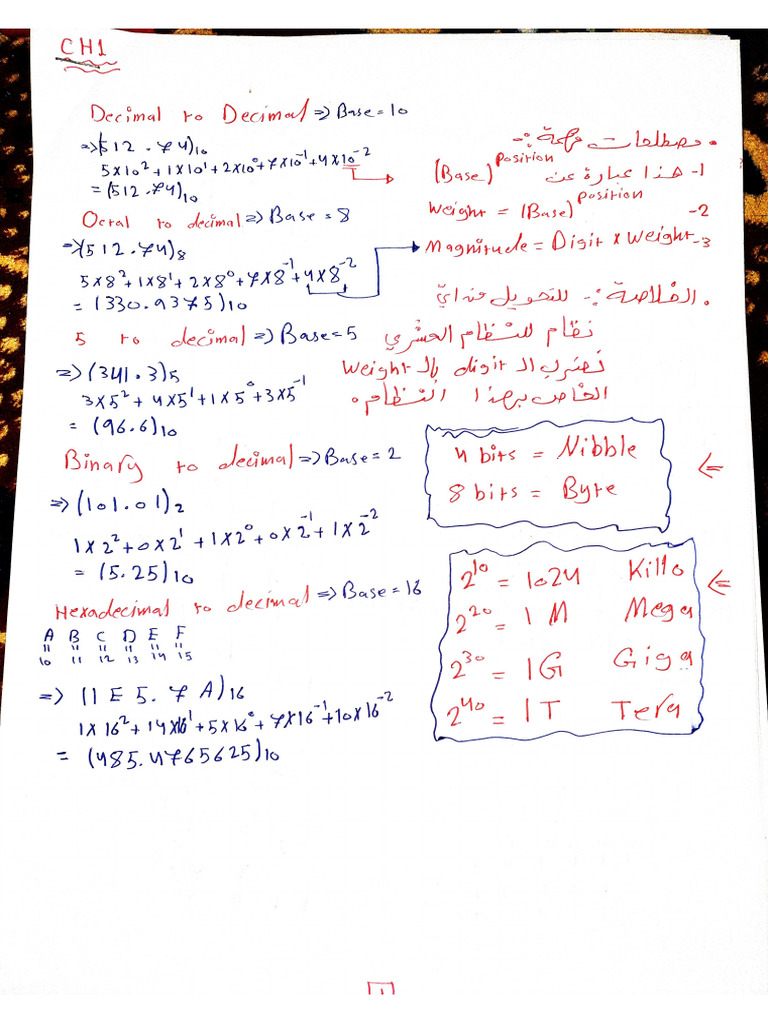 CH1
Decimal to Decimal => Base = 10
=> (512.74)10
5x10² + 1x10¹ + 2x10⁰ + 7x10⁻¹ + 4x10⁻²
= (512.74)10
Octal to decimal => Base = 8
=> (512.74)8
5x8² + 1x8¹ + 2x8⁰ + 7x8⁻¹ + 4x8⁻²
= (330.9375)10
5 to decimal => Base = 5
=> (341.3)5
3x5² + 4x5¹ + 1x5⁰ + 3x5⁻¹
= (96.6)10
Binary to decimal => Base = 2
=> (101.01)2
1x2² + 0x2¹ + 1x2⁰ + 0x2⁻¹ + 1x2⁻²
= (5.25)10
Hexadecimal to decimal => Base = 16
A B C D E F
" " " " " "
10 11 12 13 14 15
=> (1E5.7A)16
1x16² + 14x16¹ + 5x16⁰ + 7x16⁻¹ + 10x16⁻²
= (485.4765625)10
• مصطلحات مهمة :-
1- هذا عبارة عن (Base)^Position
2- Weight = (Base)^Position
3- Magnitude = Digit x Weight
• الخلاصة :- للتحويل من أيّ
نظام للنظام العشري
نضرب الـ digit بالـ Weight
الخاص بهذا النظام.
4 bits = Nibble
8 bits = Byte
<=
2¹⁰ = 1024 Killo
2²⁰ = 1 M Mega
2³⁰ = 1G Giga
2⁴⁰ = 1T Tera
<=
1